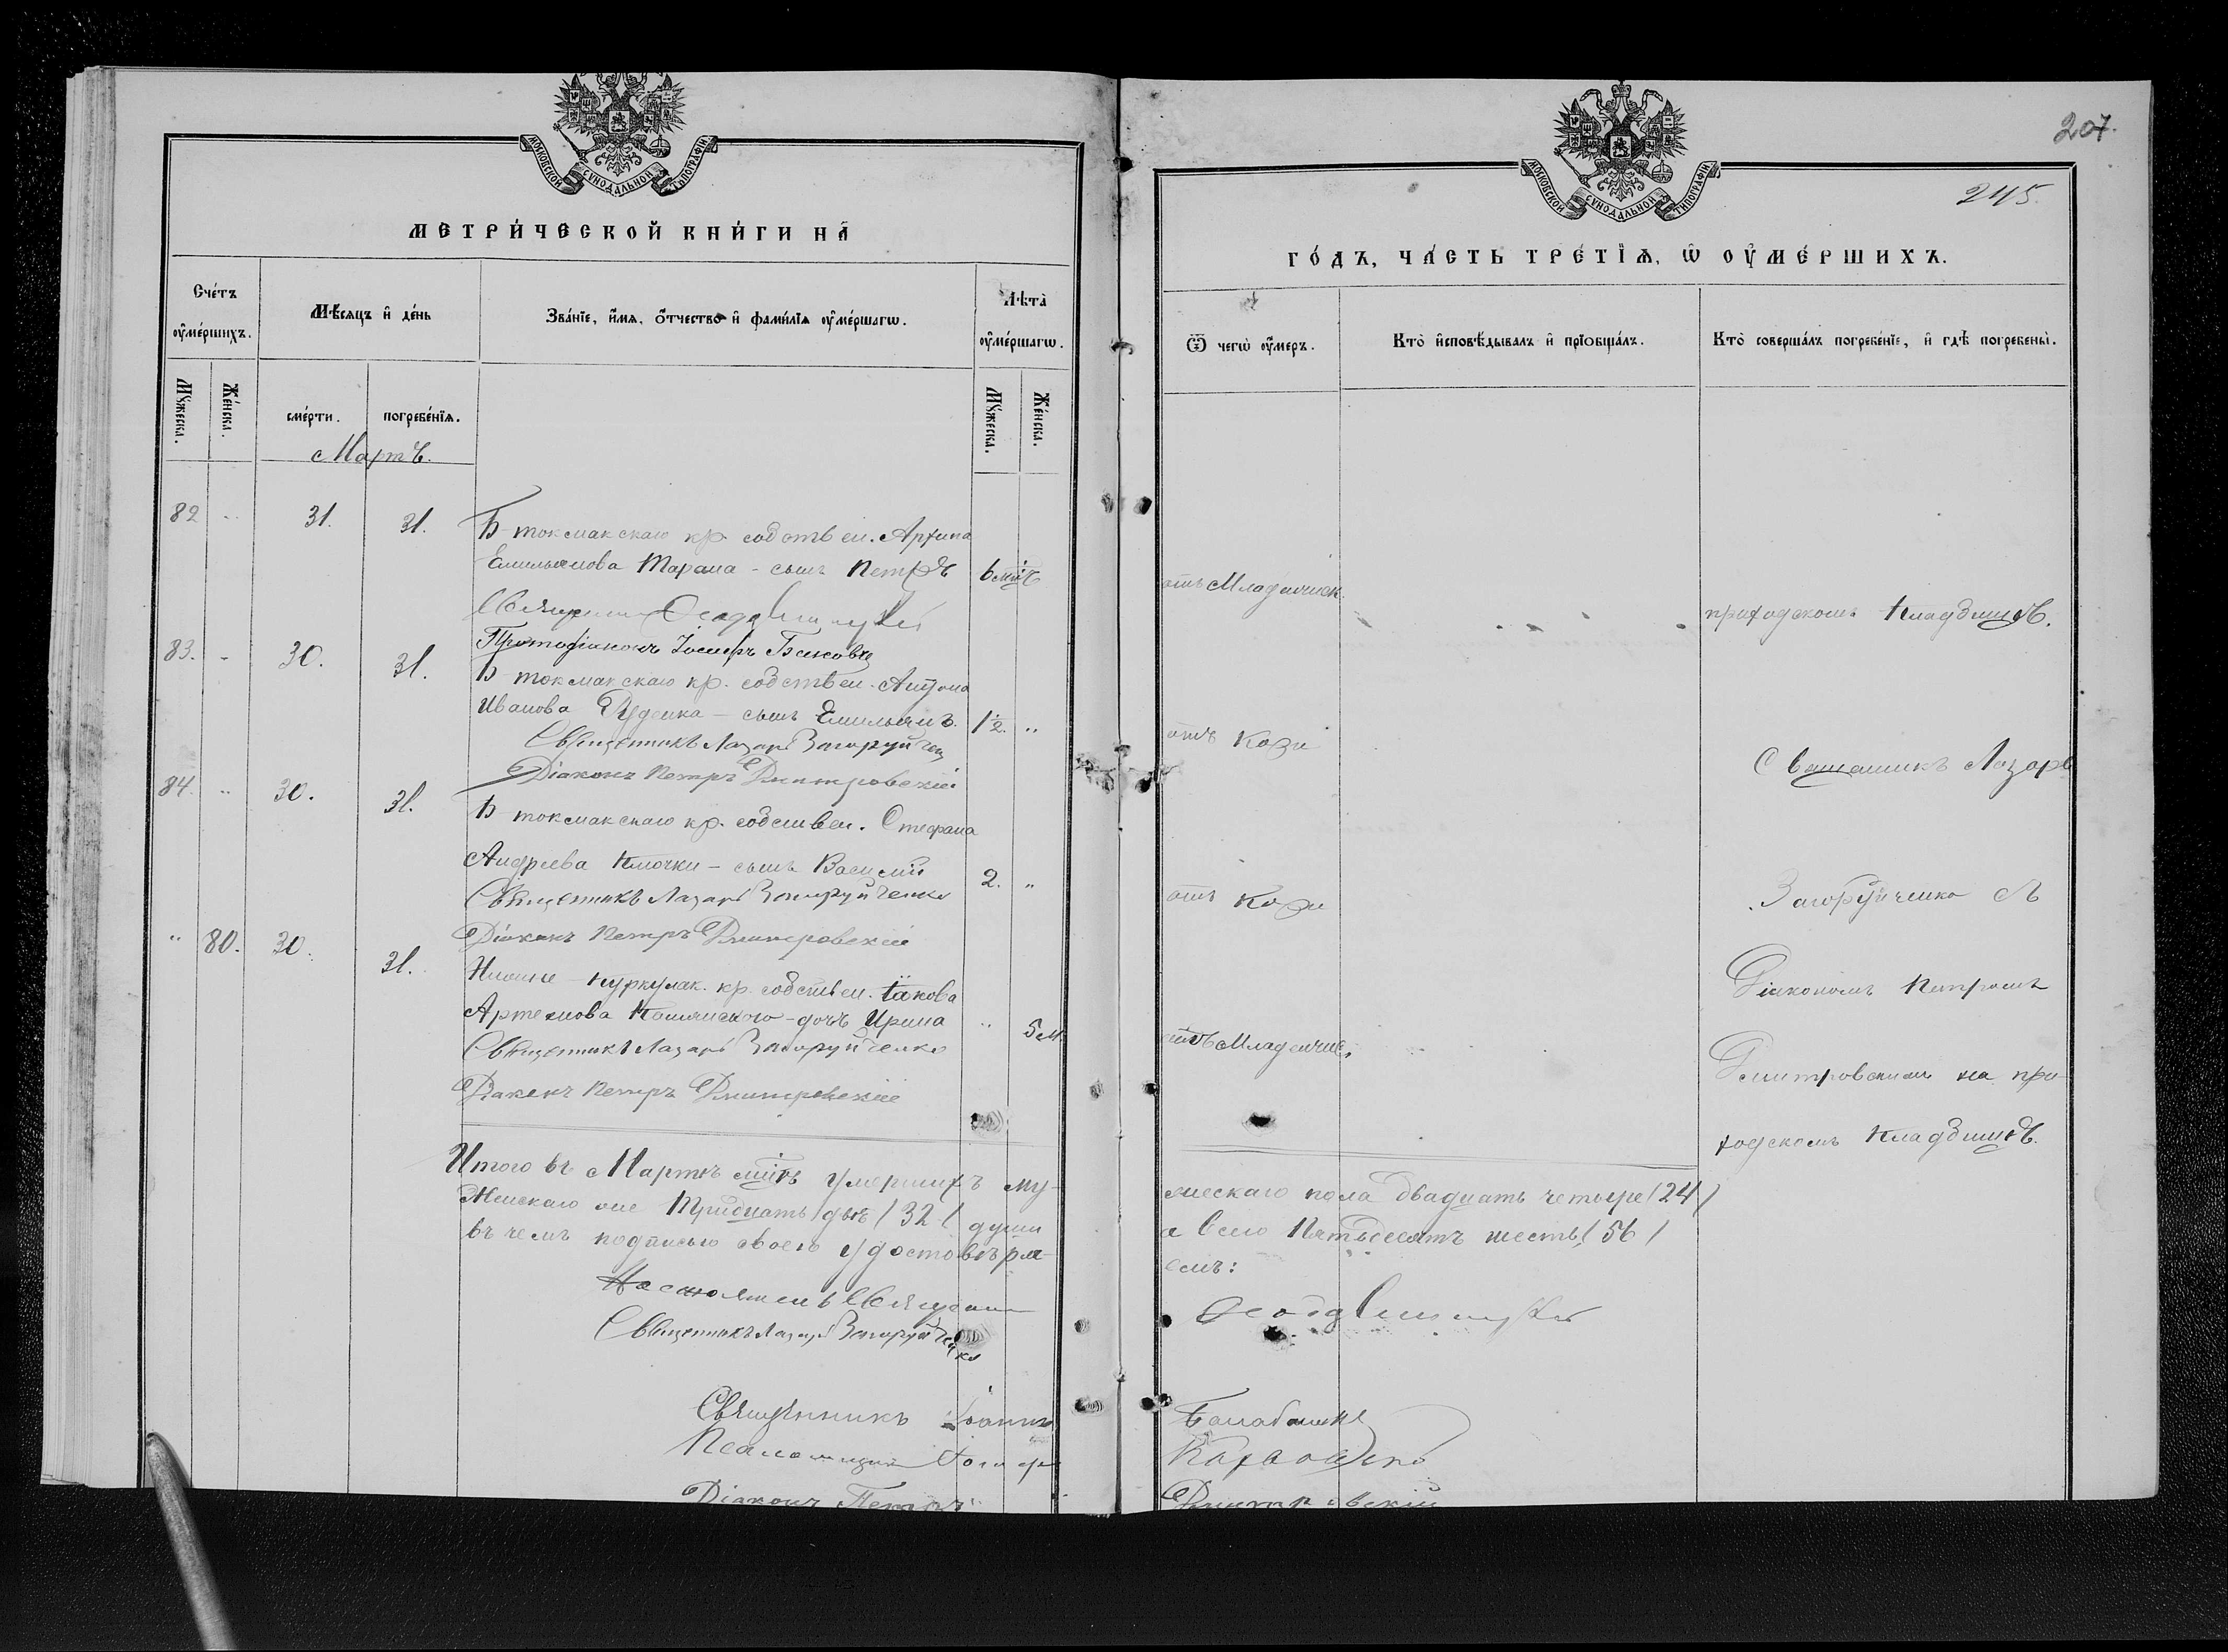 МОСКОВСКОЙ СѴНОДАЛЬНОЙ ТИПОГРАФІИ
МЕТРИ́ЧЕСКОЙ КНИ́ГИ НА̀
Сче́тъ ᲂу҆ме́ршихъ.
Мѣ́сяцъ и҆ де́нь
Зва́нїе, и҆́мѧ, ѻ҆́тчество и҆ фами́лїѧ ᲂу҆ме́ршагѡ.
Лѣта̀ ᲂу҆ме́ршагѡ.
Мꙋ́жеска.
Же́нска.
сме́рти.
погребе́нїѧ.
Мꙋ́жеска.
Же́нска.
Мартъ.
82 31. 31. Б токмакскаго кр. собствен. Архипа
Емильянова Тарана - сынъ Петръ 6 мцъ
Протодіаконъ Іосифъ
83. 30. 31. Б токмакскаго кр. собствен. Антона
Иванова Руденка - сынъ Емильянъ. 1½. "
Священникъ Лазарь Загоруйченко
Діаконъ Петръ Дмитровскій
84. " 30. 31. Б токмакскаго кр. собствен. Стефана
Андреева Клочки - сынъ Василій 2. "
Священникъ Лазарь Загоруйченко
Діаконъ Петръ Дмитровскій
" 80. 30. 31. Нижне-куркулак. кр. собствен. Іакова
Артемова - дочь Ирина " 5 м.
Священникъ Лазарь Загоруйченко
Діаконъ Петръ Дмитровскій
Итого въ Мартѣ мцѣ умершихъ му-
жескаго же Тридцать два (32) души
въ чемъ подписью своею удостовѣря-
Священникъ Лазарь Загоруйченко
Священникъ Іоаннъ
Псаломщикъ
Діаконъ Петръ
207.
245.
МОСКОВСКОЙ СѴНОДАЛЬНОЙ ТИПОГРАФІИ
ГО́ДЪ, ЧА́СТЬ ТРЕ́ТЇѦ, Ѡ҆ ОУ҆МЕ́РШИХЪ.
Ѿ чегѡ̀ ᲂу҆́меръ.
Кто̀ и҆сповѣ́дывалъ и҆ прїѡбща́лъ.
Кто̀ соверша́лъ погребе́нїе, и҆ гдѣ̀ погребены̀.
отъ Младенческ.
приходскомъ кладбищѣ.
отъ Кори
Священникъ Лазарь
отъ Кори
Загоруйченко съ
Діакономъ Петромъ
отъ Младенчес.
Дмитровскимъ на при-
ходскомъ кладбищѣ.
женскаго пола двадцать четыре (24)
а всего Пятьдесятъ шесть (56)
емъ:
Дмитровскій